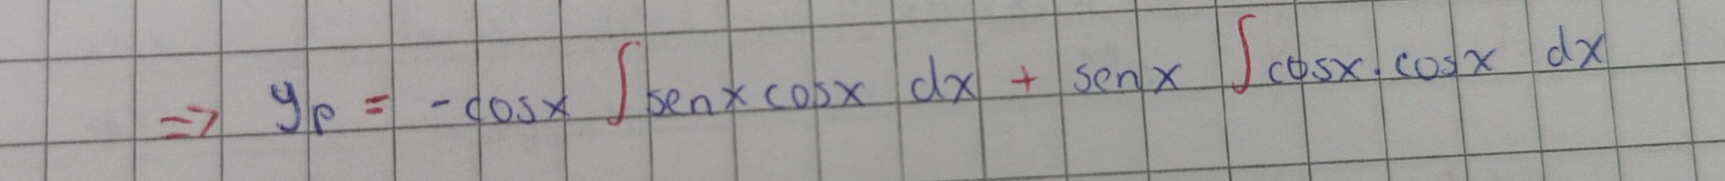 ⇒ yp = -cosx ∫ senx cosx dx + senx ∫ cosx.cosx dx